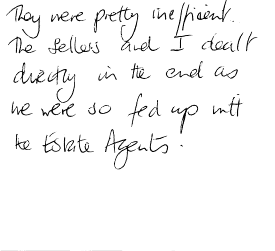 They were pretty inefficient.
The Sellers and I dealt
directly in the end as
we were so fed up with
the Estate Agents.